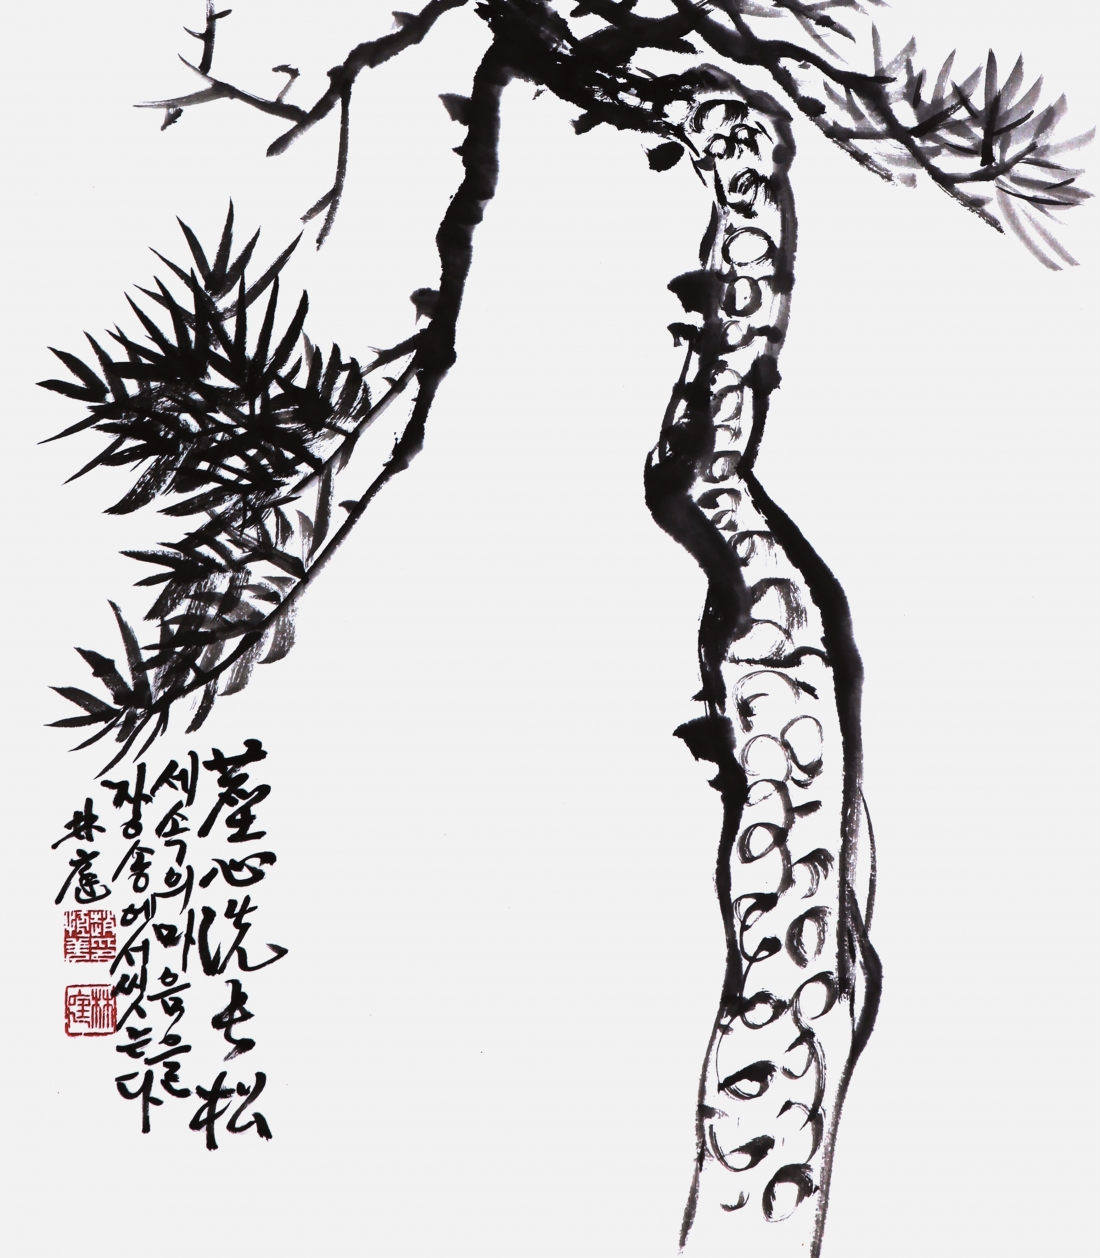 塵心洗長松
세속의마음을
장송에서씻는다
林庭
林庭